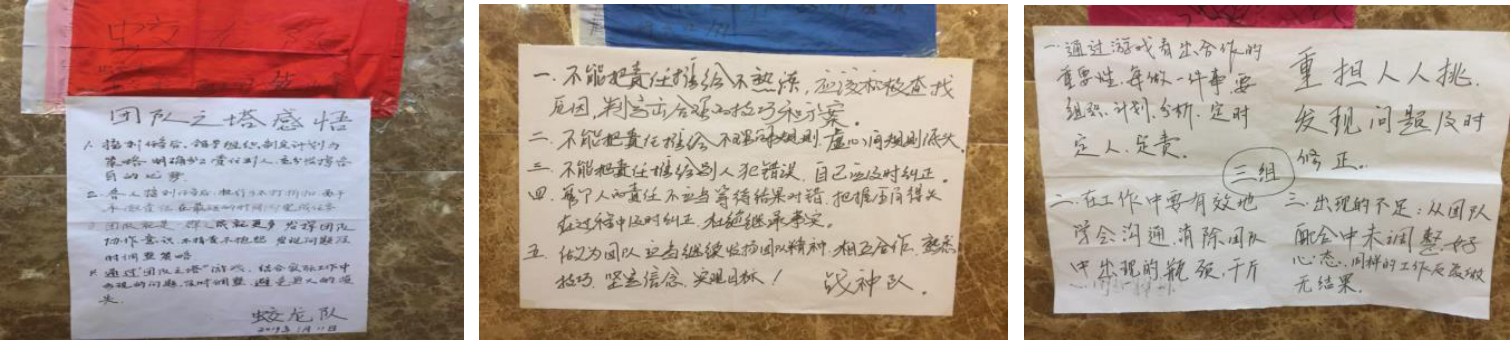 团队之塔感悟
1. 接到任务后，领导组织，制定计划与
策略，明确分工责任到人，充分发挥各
自的优势。
协作意识，不精责不抱怨，发现问题及
时调整策略
通过“团队之塔”游戏，结合实际工作中
出现的问题，及时调整，避免更大的损
失。
蛟龙队
2019年1月11日
一、不能把责任推给不熟悉，应该积极查找
原因，制定出合理的技巧和方案。
二、不能把责任推给不理解规则，虚心问规则
三、不能把责任推给别人犯错误，自己应及时纠正。
四、每个人的责任不应当等待结果对错，把握
在过程中及时纠正，杜绝继录事实。
五、做为团队应当继续发扬团队精神，相互合作，熟悉
技巧，坚定信念，实现目标！
战神队。
一、通过游戏看出合作的
重要性，每做一件事，要
组织、计划、分析、定时
定人、定责。
二、在工作中要有效地
学会沟通，消除团队
中出现的瓶颈，千斤
重担人人挑，
发现问题及时
修正。
三组
三、出现的不足：从团队
配合中未调整好
心态，同样的工作反复做
无结果。